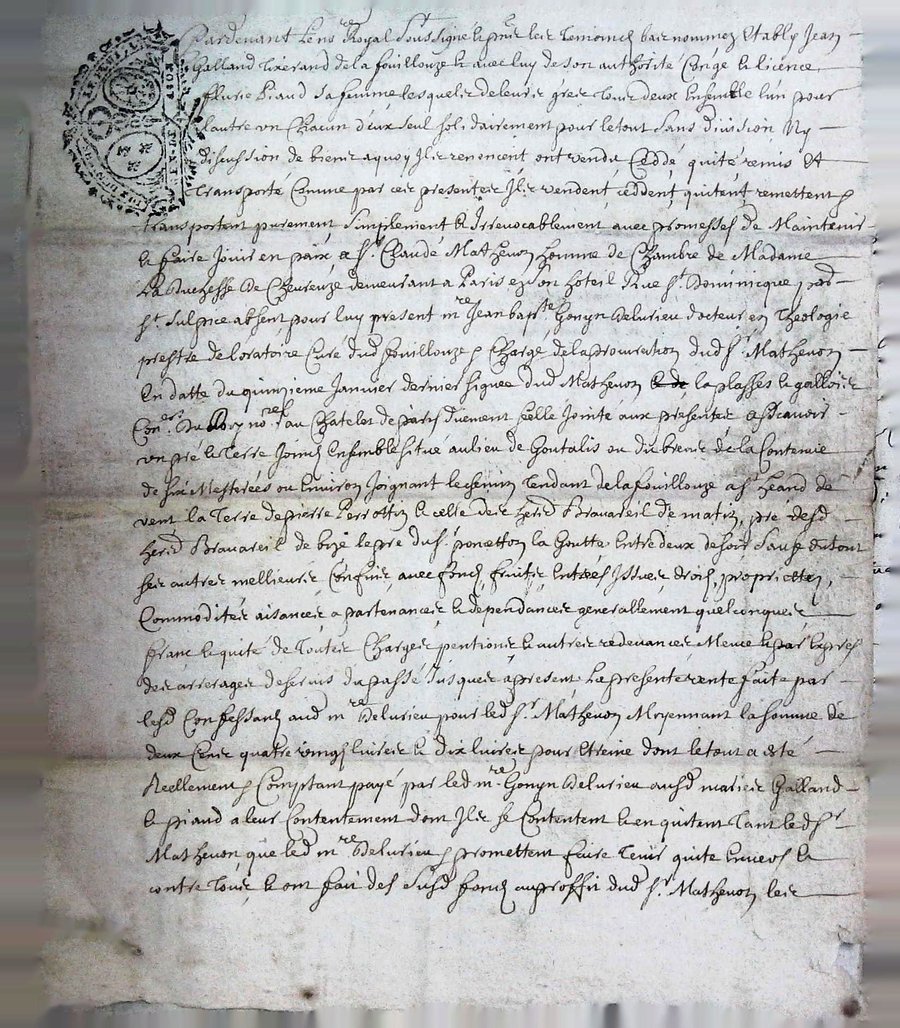 Pardevant le no.re Royal soussigné & presents les temoings bas nommez Etably Jean
Galland tixerand de la fouillouze & avec luy de son authorité Congé & licence
fleurie Piaud sa femme lesquels de leurs grés tous deux Ensemble l'un pour
l'autre un chacun d'eux seul solidairement pour le tout sans division Ny
discussion de biens a quoy Ils renoncent ont vendu Ceddé quité remis Et
Transporté Comme par ces presentes Ils vendent, ceddent, quitent, remettent &
transportent purement simplement & Irrevocablement avec promesses de Maintenir
& faire Jouir en paix a Sr. Claude Mathevon homme de Chambre de Madame
La Duchesse De Chevreuze demeurant a Paris en son hoteil Rue St. Dominicque par
St Sulpice absent pour luy present mre Jean bapte Gonyn Delurieu docteur en Theologie
prestre de loratoire Curé dud fouillouze & Chargé de la procuration dud Sr Mathevon
En datte du quinzieme Janvier dernier signée dud Mathevon la plasses & gallois
Coners. Du Roy nores au Chatelet de paris duement scellé Jointe aux presentes assavoir
un pré & Terre Joincts Ensemble situé au lieu de Goutalis ou du breuil de la Contenue
de six Mesterées ou Environ Joignant le chemin Tendant de la fouillouze a St heand de
vent la Terre de pierre Perrotton & celle des hered Bravareil de matin, pre desd
hered Bravareil de bize le pre du Sr ponetton la Goutte Entre deux de soir Sauf du tout
ses autres mellieurs Confins avec fonds, fruits Entrées Issues droits, proprietez,
Commodités aisances apartenances & dependances generallement quelconques
franc & quité de Toutes Charges pentions & autres redevances Mesme & par Exprés
des arrerages de servis du passé Jusques a present La presente vente faite par
lesd Confessants aud mre Delurieu pour led Sr. Mathevon Moyennant la somme de
deux Cens quatre vingt livres & dix livres pour Etreine dont le tout a esté
Reellement & Comptant payé par led mre Gonyn Delurieu ausd mariés Galland
& piaud a leur Contentement dont Ils se Contentent & en quitent Tant led Sr
Mathevon que led mre Delurieu & promettent faire Tenir quite Envers &
contre Tous & ont fait des susd fonds au proffit dud Sr. Mathevon les